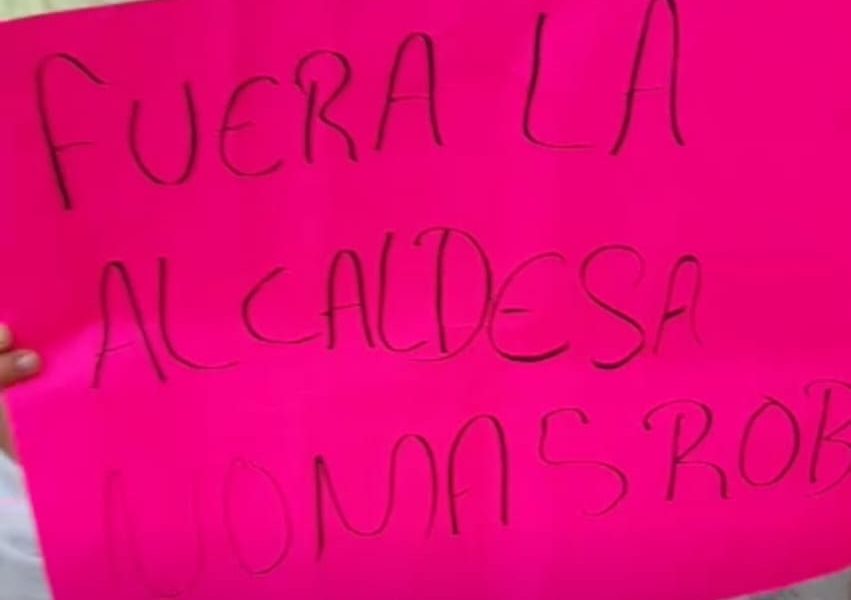 FUERA LA
ALCALDESA
NO MAS ROB